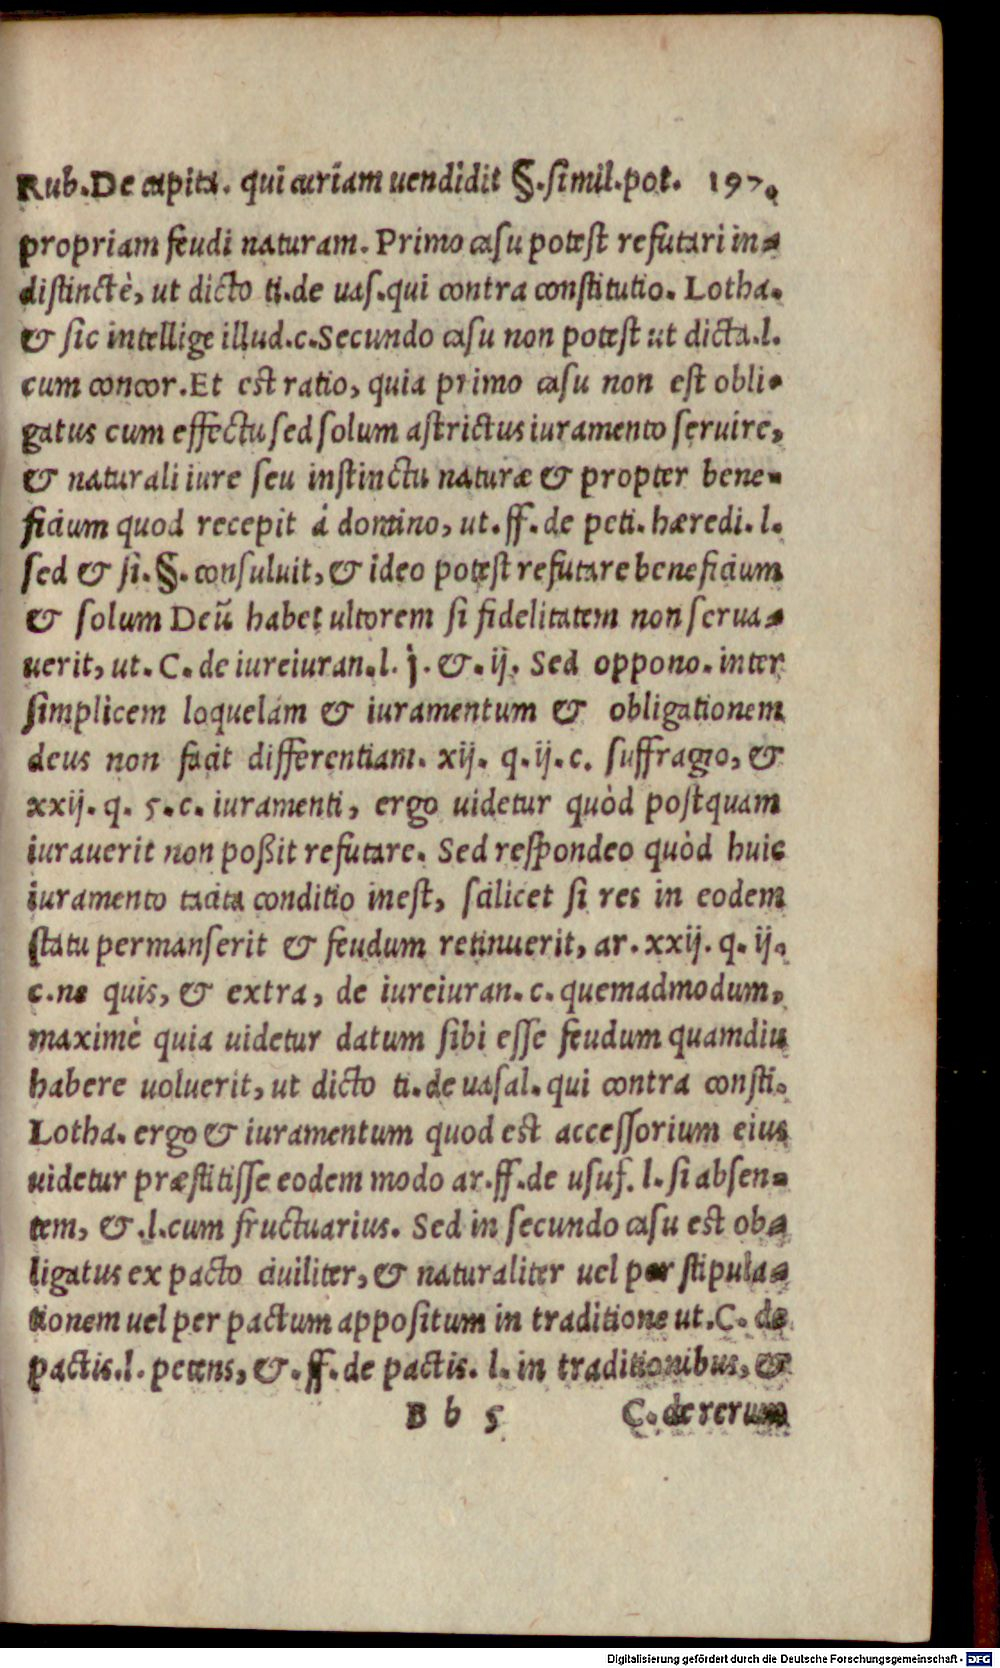 Rub. De capita. qui curiam uendidit §. simil. pot. 197.
propriam feudi naturam. Primo casu potest refutari in-
distinctè, ut dicto ti. de uas. qui contra constitutio. Lotha.
& sic intellige illud. c. Secundo casu non potest ut dicta. l.
cum concor. Et est ratio, quia primo casu non est obli-
gatus cum effectu sed solum astrictus iuramento seruire,
& naturali iure seu instinctu naturæ & propter bene-
ficium quod recepit á domino, ut. ff. de peti. hæredi. l.
sed & si. §. consuluit, & ideo potest refutare beneficium
& solum Deũ habet ultorem si fidelitatem non serua-
uerit, ut. C. de iureiuran. l. j. &. ij. Sed oppono. inter
simplicem loquelam & iuramentum & obligationem
deus non facit differentiam. xij. q. ij. c. suffragio, &
xxij. q. 5. c. iuramenti, ergo uidetur quòd postquam
iurauerit non poßit refutare. Sed respondeo quòd huic
iuramento tacita conditio inest, scilicet si res in eodem
statu permanserit & feudum retinuerit, ar. xxij. q. ij.
c. ne quis, & extra, de iureiuran. c. quemadmodum,
maximè quia uidetur datum sibi esse feudum quamdiu
habere uoluerit, ut dicto ti. de uasal. qui contra consti.
Lotha. ergo & iuramentum quod est accessorium eius
uidetur præstitisse eodem modo ar. ff. de usuf. l. si absen-
tem, &. l. cum fructuarius. Sed in secundo casu est ob-
ligatus ex pacto ciuiliter, & naturaliter uel per stipula-
tionem uel per pactum appositum in traditione ut. C. de
pactis. l. petens, &. ff. de pactis. l. in traditionibus, &
B b 5 C. de rerum
Digitalisierung gefördert durch die Deutsche Forschungsgemeinschaft - DFG